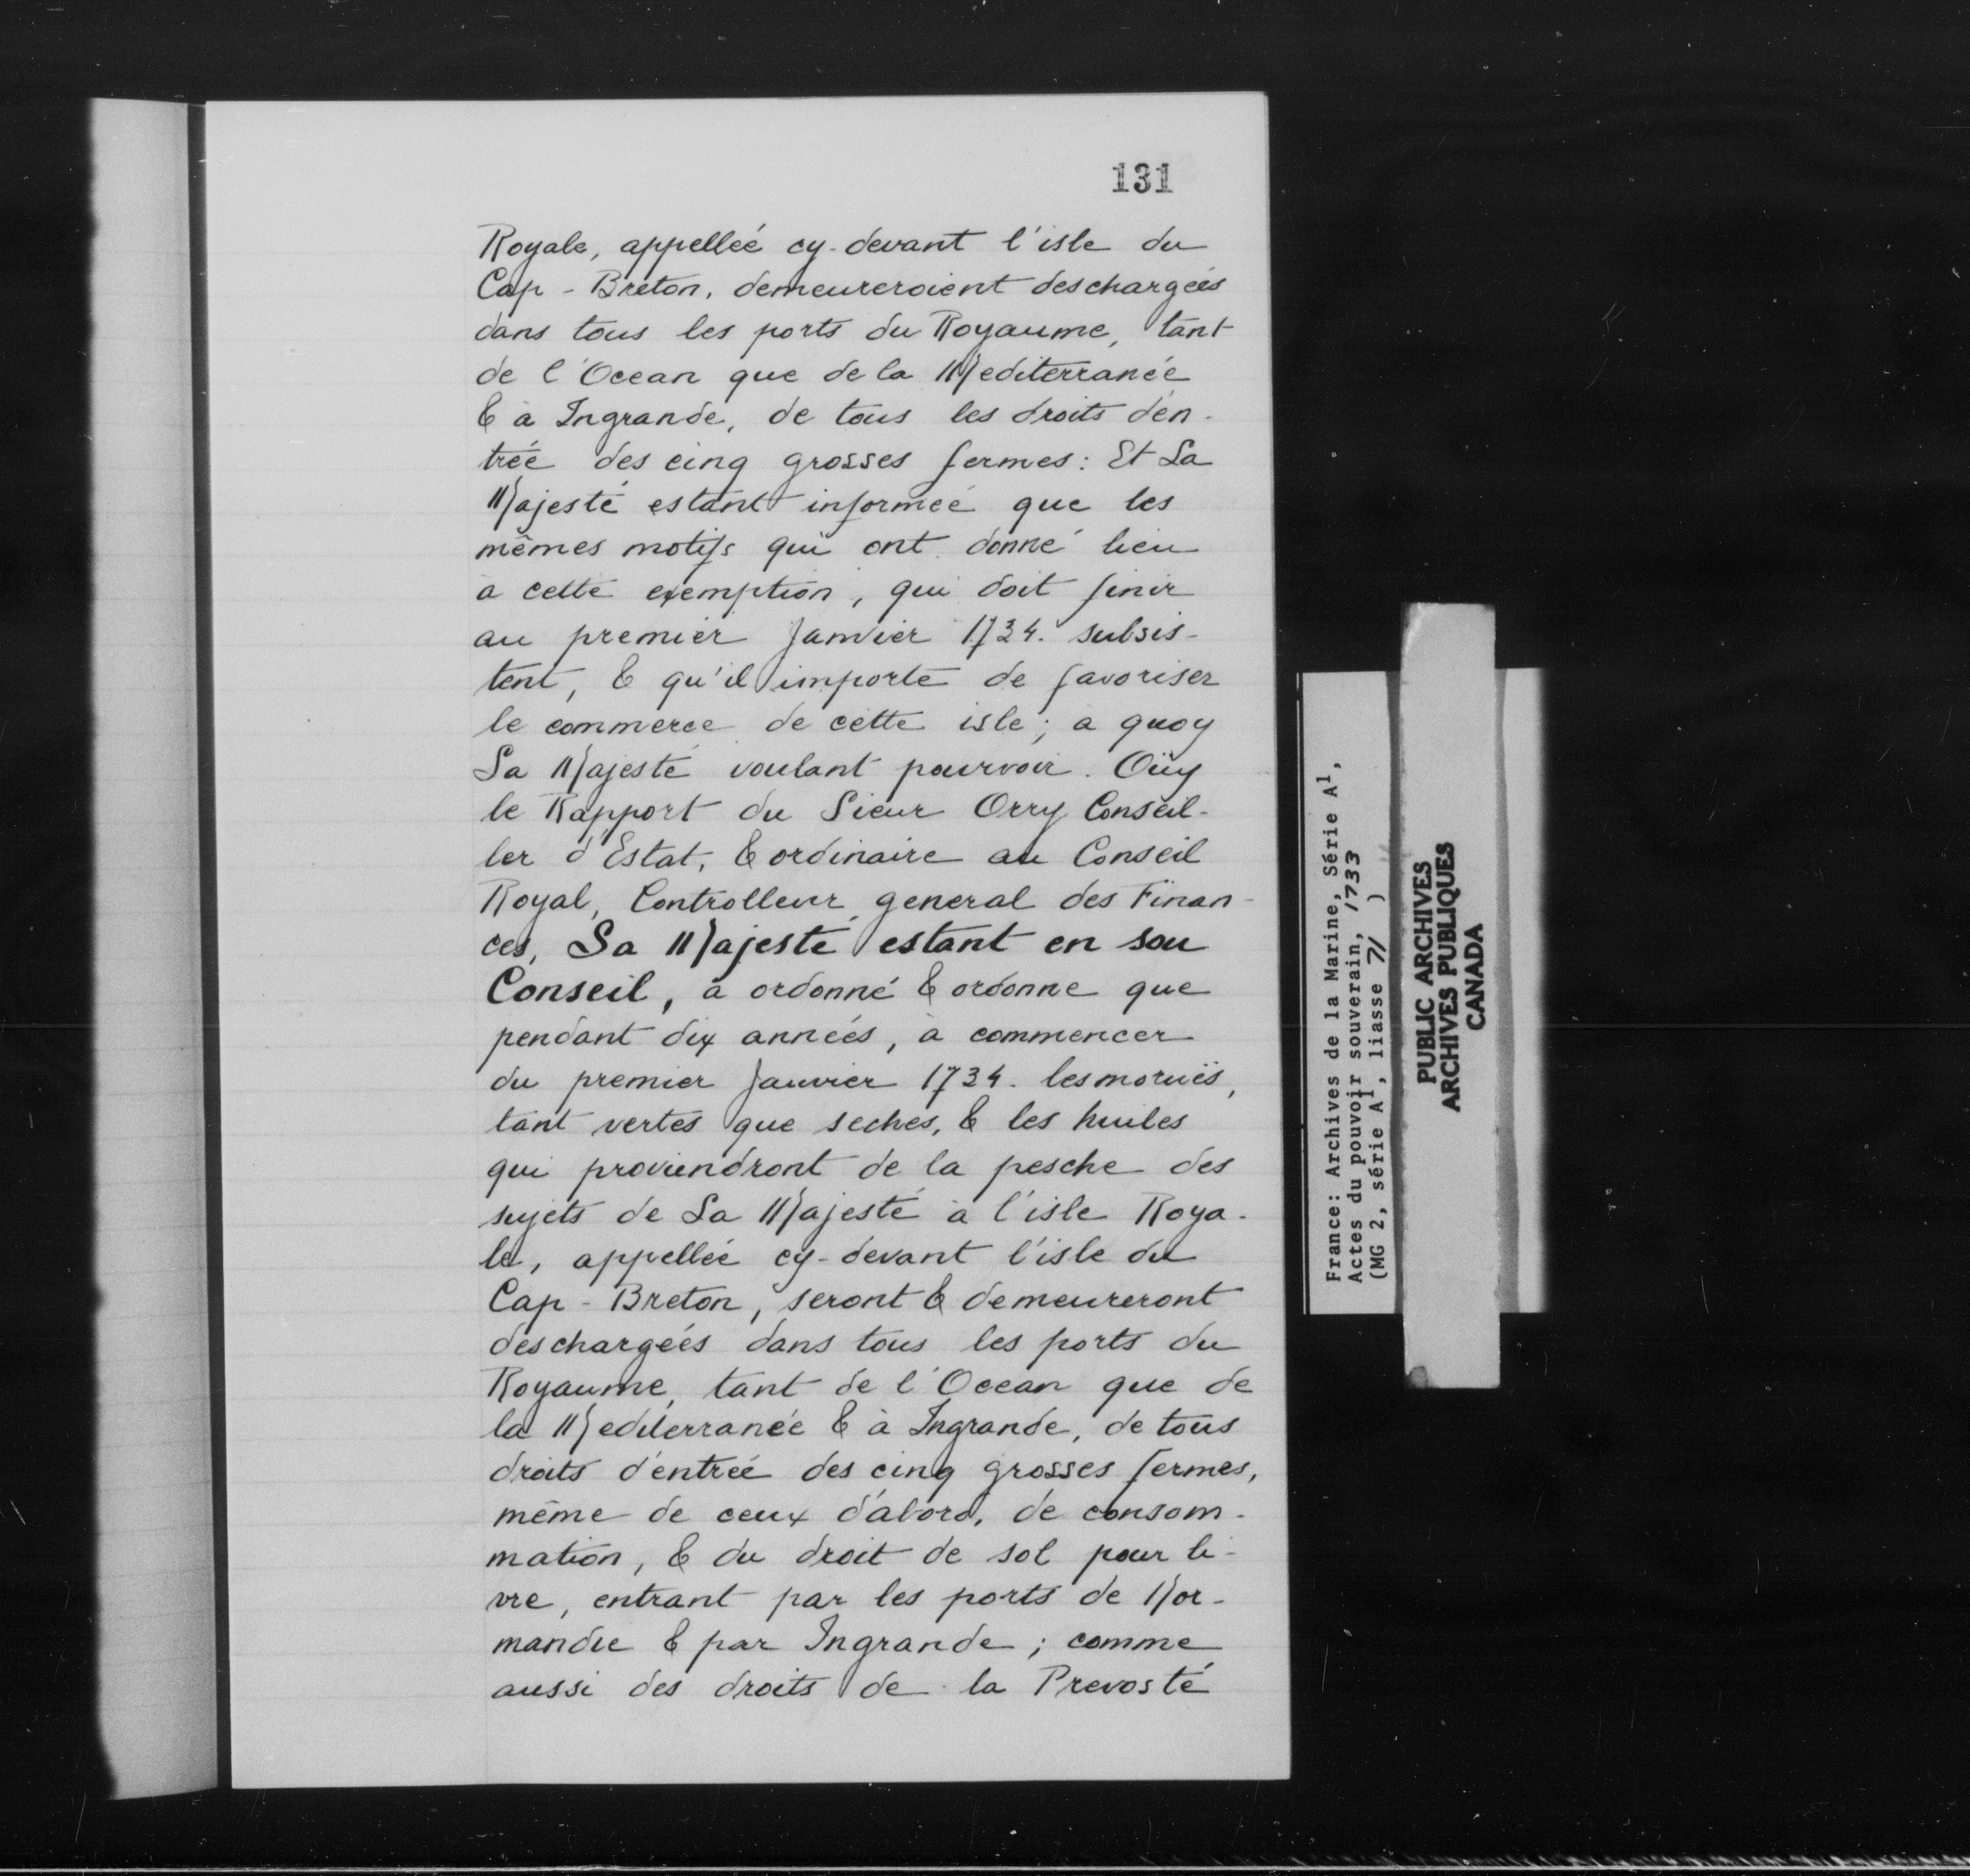 131
Royale, appelleé cy-devant l'isle du
Cap-Breton, demeureroient deschargeés
dans tous les ports du Royaume, tant
de l'Ocean que de la Mediterraneé
& à Ingrande, de tous les droits d'en-
trée des cinq grosses fermes: Et Sa
Majesté estant informeé que les
mêmes motifs qui ont donné lieu
à cette exemption, qui doit finir
au premier Janvier 1734. subsis-
tent, & qu'il importe de favoriser
le commerce de cette isle; à quoy
Sa Majesté voulant pourvoir. Oüy
le Rapport du Sieur Orry Conseil-
ler d'Estat, & ordinaire au Conseil
Royal, Controlleur general des Finan-
ces, Sa Majesté estant en son
Conseil, a ordonné & ordonne que
pendant dix anneés, à commencer
du premier Janvier 1734. les moruës,
tant vertes que seches, & les huiles
qui proviendront de la pesche des
sujets de Sa Majesté à l'isle Roya-
le, appelleé cy-devant l'isle du
Cap-Breton, seront & demeureront
deschargeés dans tous les ports du
Royaume, tant de l'Ocean que de
la Mediterraneé & à Ingrande, de tous
droits d'entreé des cinq grosses fermes,
même de ceux d'abord, de consom-
mation, & du droit de sol pour li-
vre, entrant par les ports de Nor-
mandie & par Ingrande; comme
aussi des droits de la Prevosté
France: Archives de la Marine, Série A1,
Actes du pouvoir souverain, 1733
(MG 2, série A1, liasse 71 )
PUBLIC ARCHIVES
ARCHIVES PUBLIQUES
CANADA